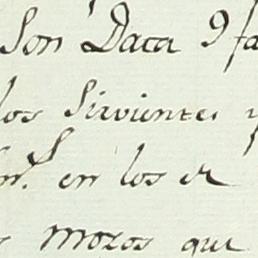 Son Data 9 fa
los Sirvientes y
en los er
mozos que